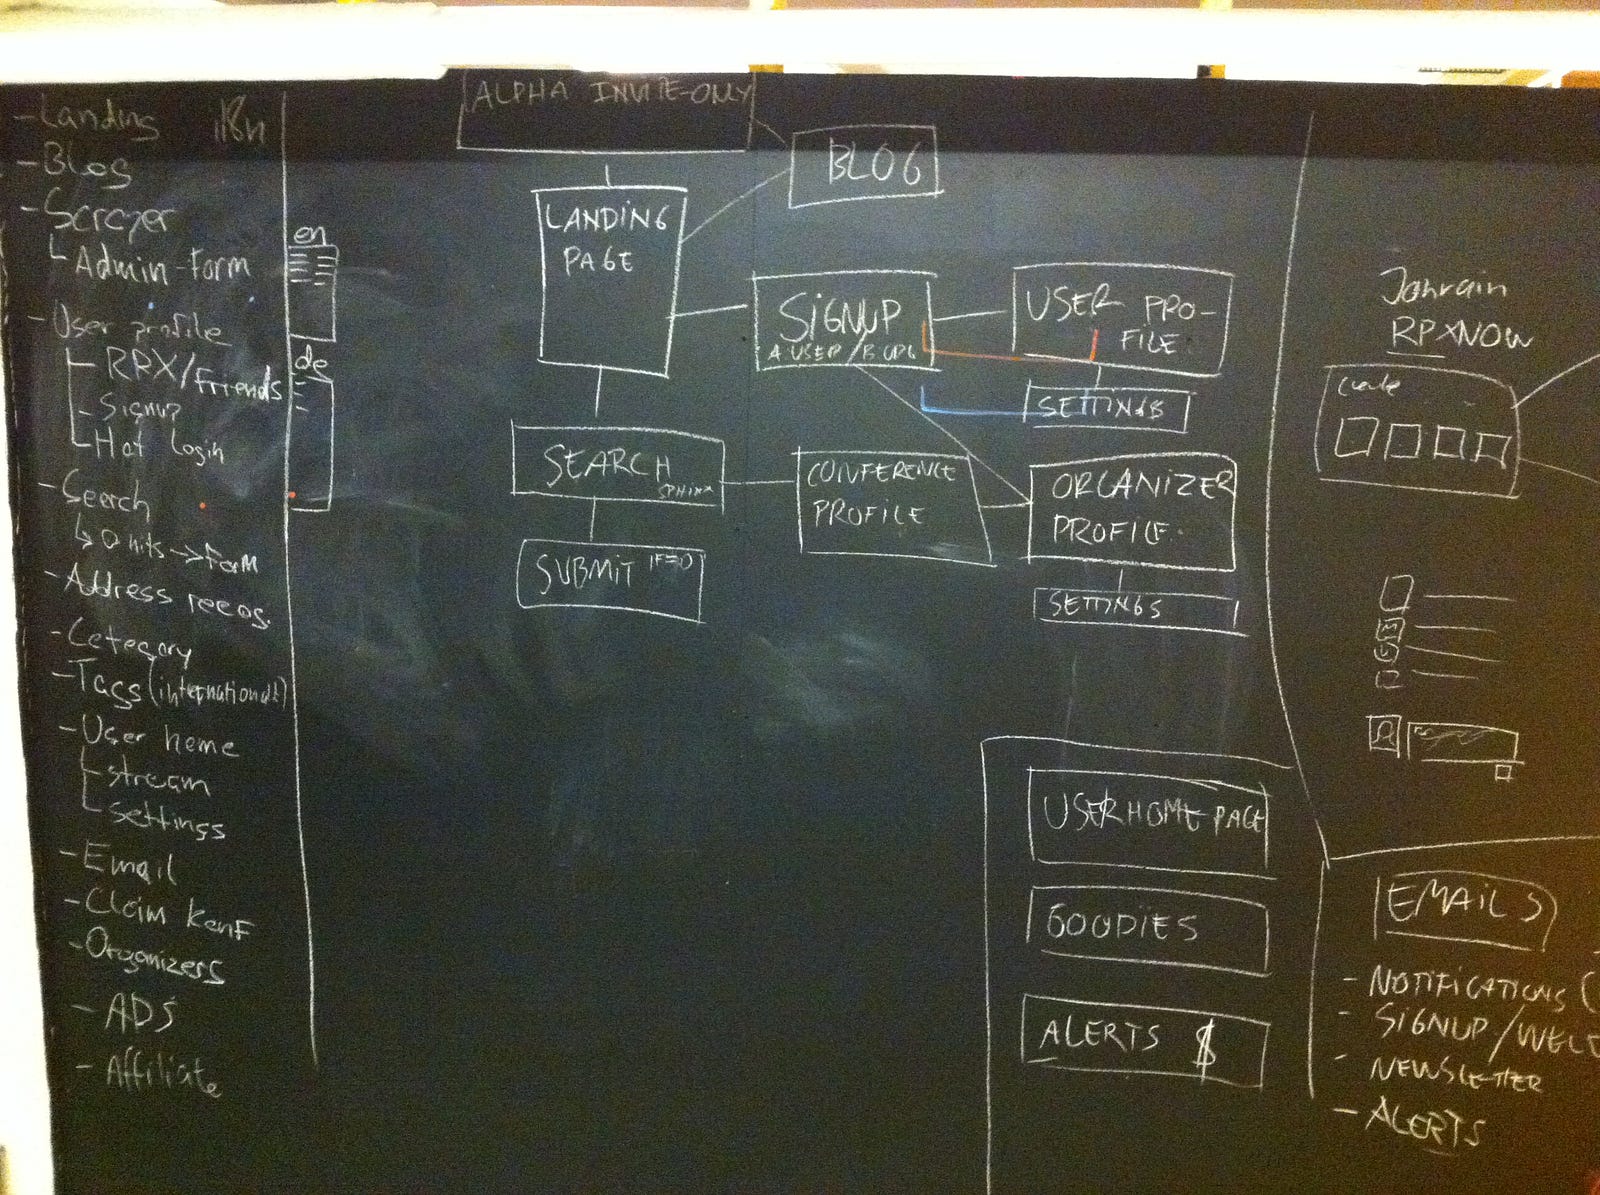 -Landing i18n
-Blog
-Scraper
Admin-Form
-User profile
RPX/Friends
-Signup
Hat login
-Search
↳ 0 hits->Form
-Address recog.
-Category
-Tags (international!)
-User home
stream
settings
-Email
-Claim Konf
-Organizers
-ADS
-Affiliate
en
de
ALPHA INVITE-ONLY
BLOG
LANDING
PAGE
SIGNUP
A USER / B ORG
USER PRO-
FILE
SETTINGS
SEARCH
SPHINX
CONFERENCE
PROFILE
ORGANIZER
PROFILE
SETTINGS
SUBMIT IF=0
USERHOMEPAGE
GOODIES
ALERTS $
Janrain
RPXNOW
EMAILS
- NOTIFICATIONS (
- SIGNUP/WELC
- NEWSLETTER
- ALERTS